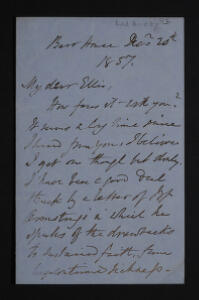 Dec 20th
1857.
My dear Ellis,
How fares it with you?
It seems a long time since
I heard from you, I believe
I got one though but lately.
I have been a good deal
struck by a letter of Bp
Armstrong's in which he
speaks of the drawbacks
to sustained faith, from